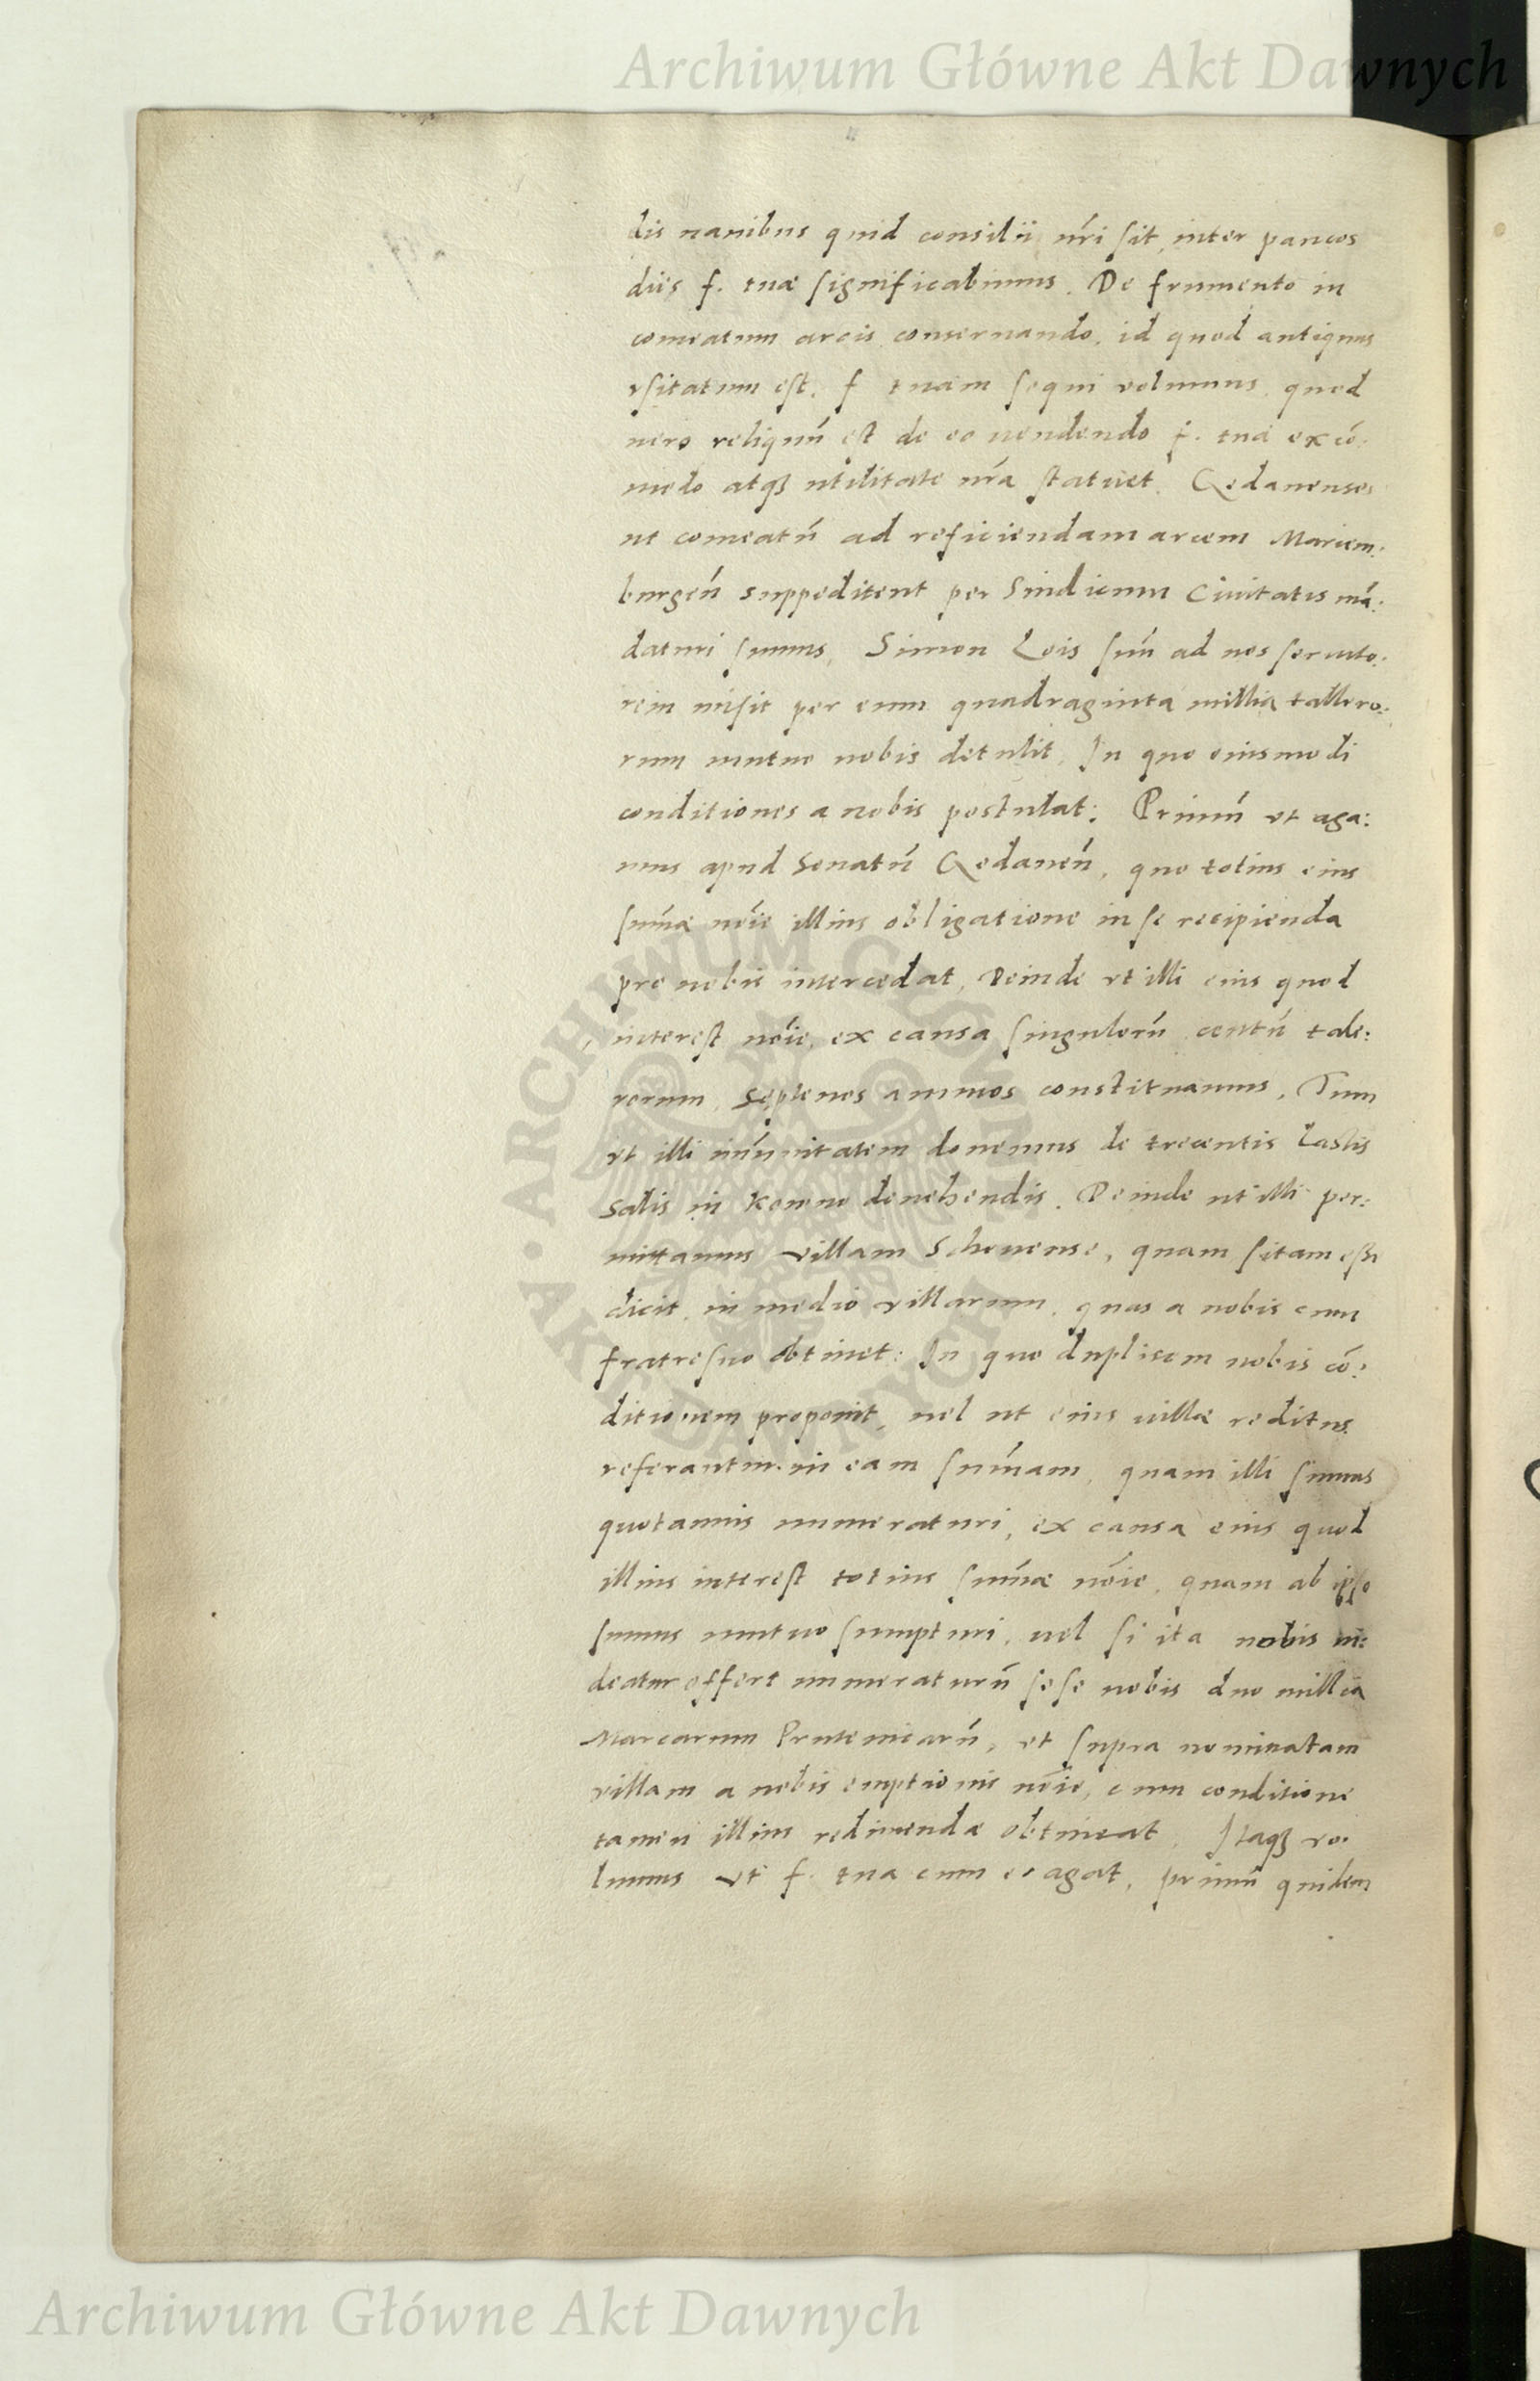 Archiwum Główne Akt Dawnych
dis nauibus quid consilii nr̃i sit, inter paucos
dies f. tuæ significabimus. De frumento in
comeatum arcis conseruando, id quod antiquus
vsitatum est, f tuam sequi volumus, quod
uero reliquũ est de eo uendendo f. tua ex cõ:
modo atqꝫ utilitate nr̃a statuet. Gedanenses
ut comeatũ ad reficiendam arcem Mariem:
burgeñ suppeditent per Sindicum Ciuitatis mã:
daturi sumus, Simon Lois suũ ad nos seruito:
rem misit per eum quadraginta millia tallero:
rum mutuo nobis detulit, In quo eiusmodi
conditiones a nobis postulat: Primũ vt aga:
mus apud Senatũ Gedaneñ, quo totius eius
sum̃æ nõie illius obligatione in se recipienda
pro nobis intercedat, Deinde vt illi eius quod
interest nõie, ex causa singulorũ centũ tale:
rorum, Septenos annuos constituamus, Tum
vt illi im̃unitatem donemus de trecentis Lastis
Salis in Kowno deuehendis. Deinde ut illi per:
mittamus villam Schonense, quam sitam esse
dicit, in medio villarum, quas a nobis cum
fratre suo obtinet: In quo duplicem nobis cõ:
ditionem proponit, uel ut eius uillæ reditus
referantur in eam sum̃am, quam illi sumus
quotannis numeraturi, ex causa eius quod
illius interest totius sum̃æ nõie, quam ab ipso
sumus mutuo sumpturi, uel si ita nobis ui:
deatur offert numeraturũ sese nobis duo millia
Marcarum Prutenicarũ, et supra nominatam
villam a nobis emptionis nõie, cum conditione
tamen illius redimendæ obtineat. Itaqꝫ vo:
lumus vt f. tua cum eo agat, primũ quidem
ARCHIWUM GŁÓWNE AKT DAWNYCH
Archiwum Główne Akt Dawnych